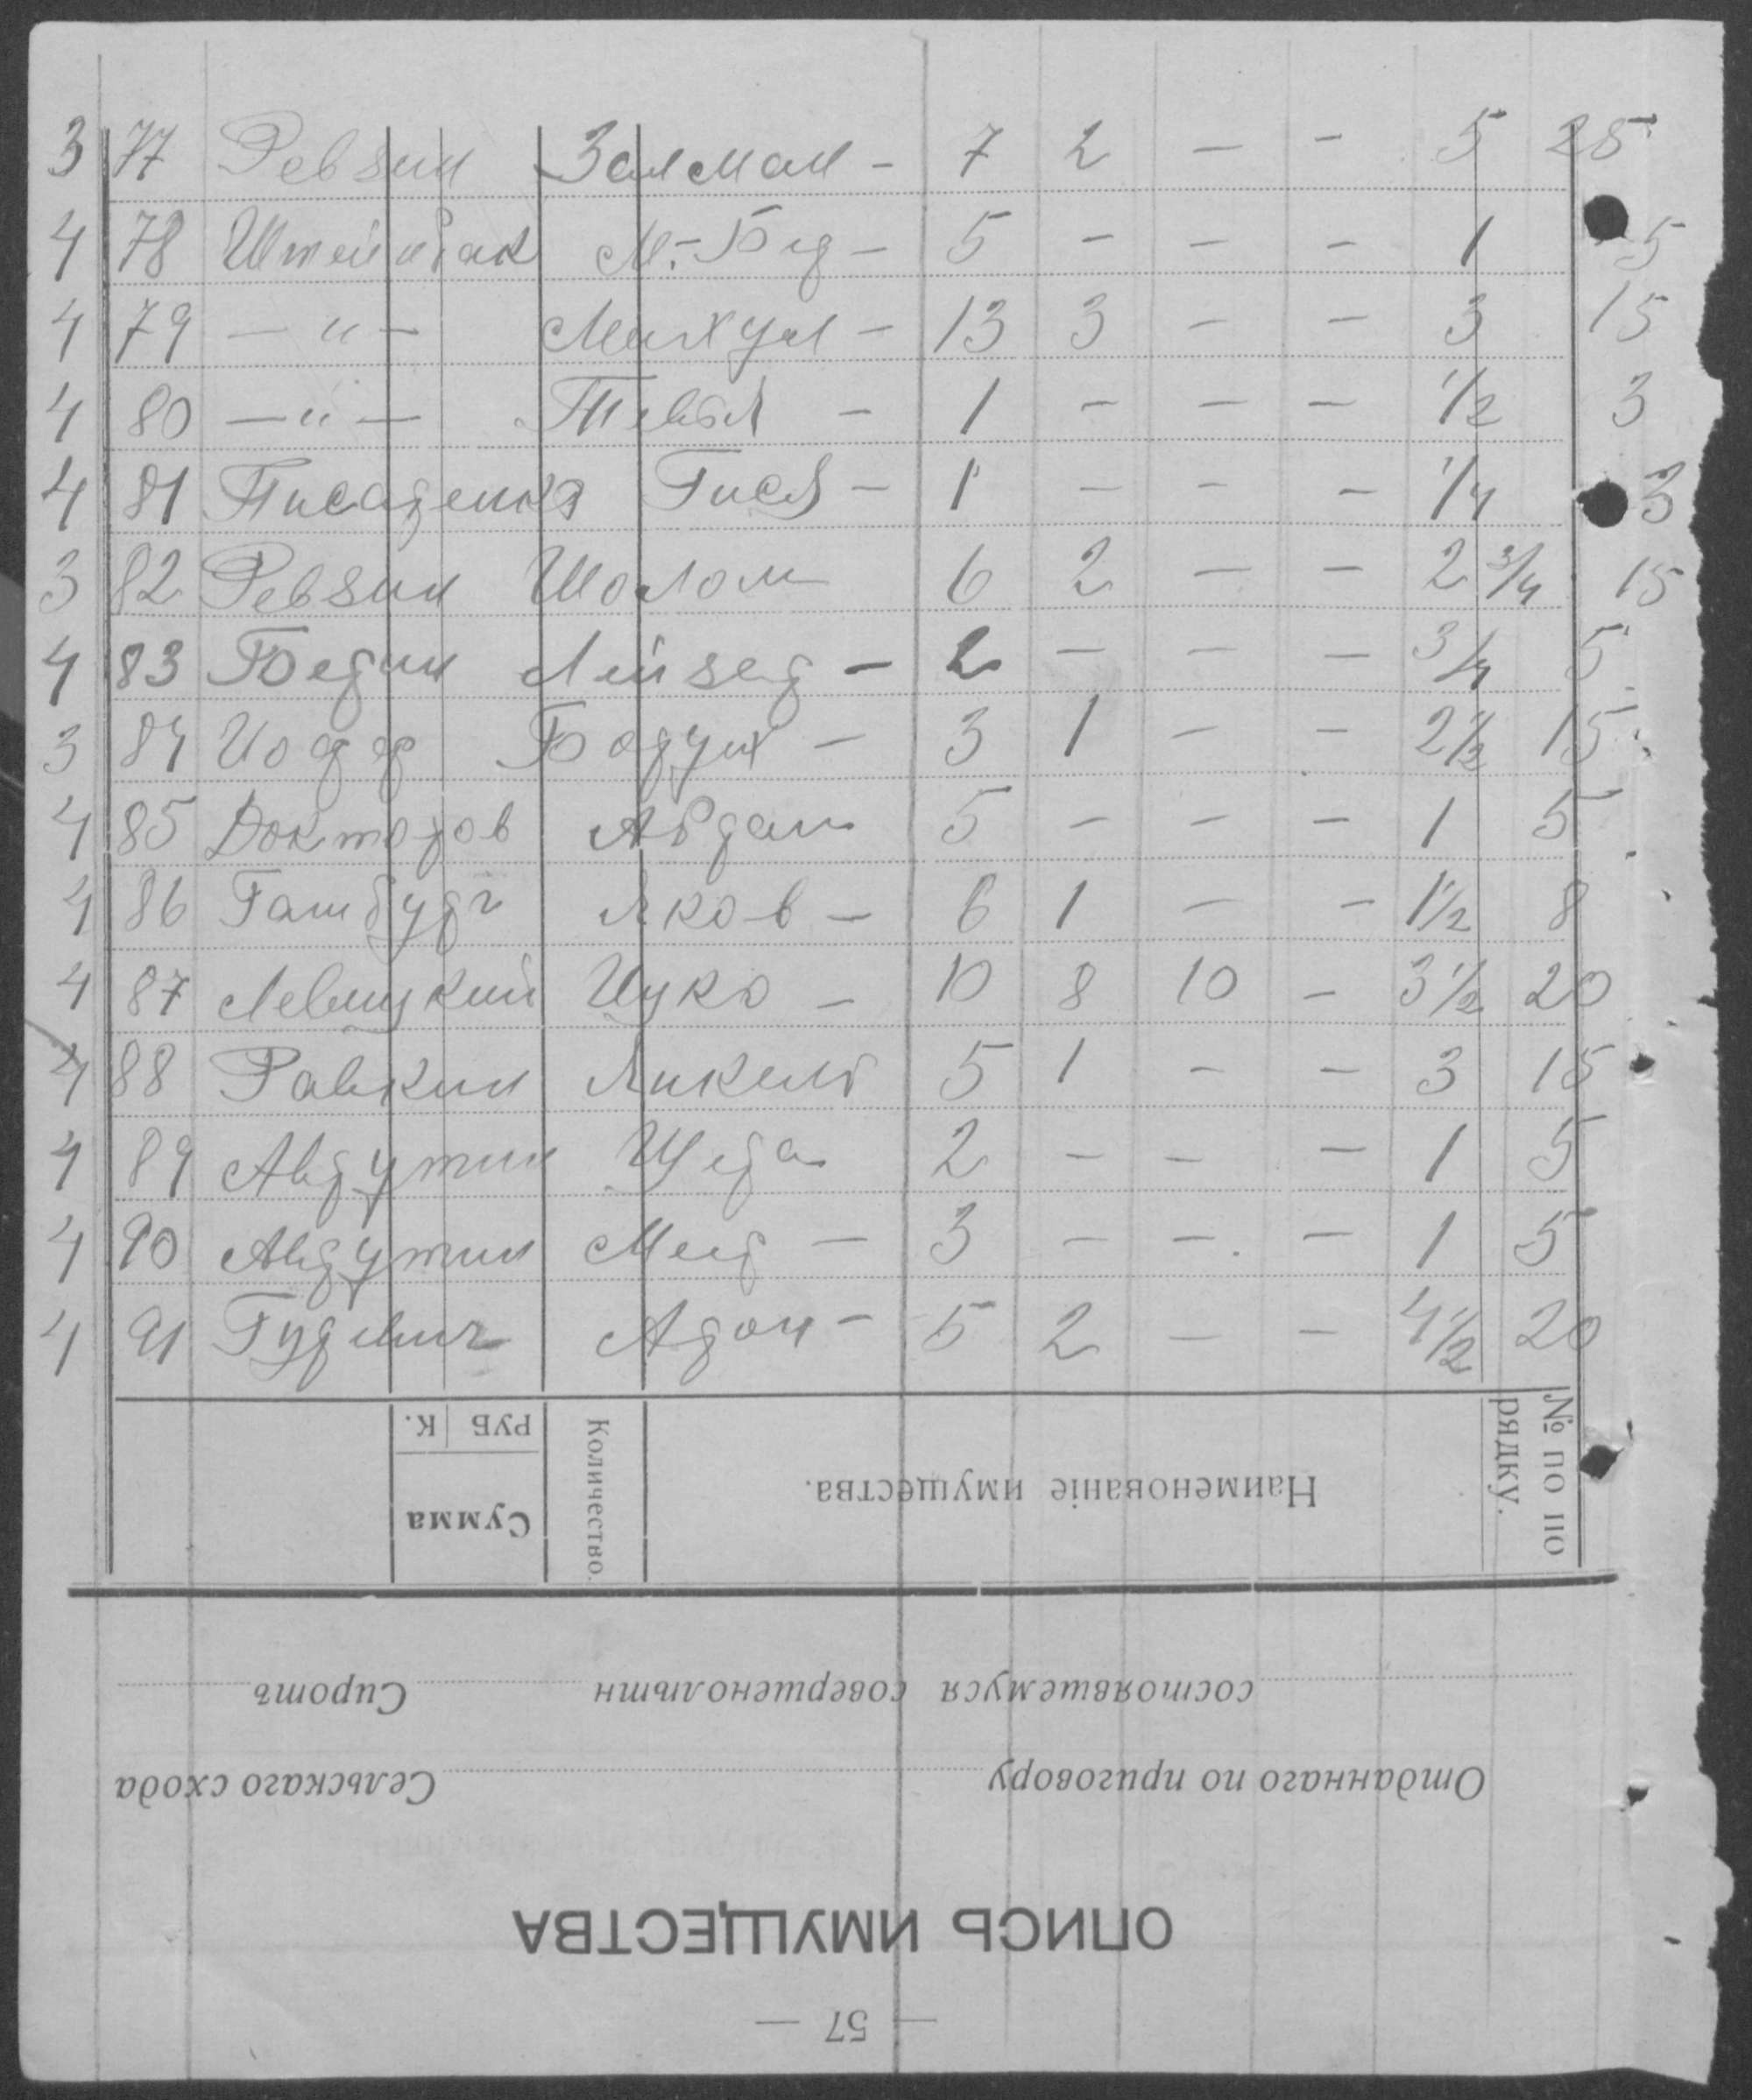 3 77 Ревзин Залман - 7 2 - - 5 25
4 78 Штейнбак М.-Бер - 5 - - - 1 5
4 79 - " - Михул - 13 3 - - 3 15
4 80 - " - Тевья - 1 - - - 1/2 3
4 81 Писаренко Гися - 1 - - - 1/4 3
3 82 Ревзин Шолом 6 2 - - 2 3/4 15
4 83 Берин Лейзер - 2 - - - 3/4 5
3 84 Иофф Борух - 3 1 - - 2 1/2 15
4 85 Докторов Абрам 5 - - - 1 5
4 86 Гамбург Яков - 6 1 - - 1 1/2 8
4 87 Левицкий Ицко - 10 8 10 - 3 1/2 20
4 88 Равкин Янкель 5 1 - - 3 15
4 89 Аврутин Шера 2 - - - 1 5
4 90 Аврутин Меер - 3 - - - 1 5
4 91 Гуревич Арон - 5 2 - - 4 1/2 20
— 57 —
ОПИСЬ ИМУЩЕСТВА
Отданнаго по приговору Сельскаго схода
состоявшемуся совершенолѣтн Сиротъ
№ по порядку. Наименованіе имущества. Количество. Сумма
РУБ К.